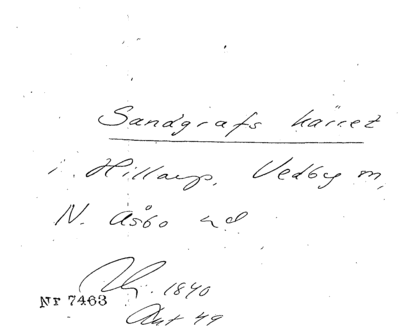 Sandgrafs kärret
i Hillarp, Vedby m,
N. Åsbo hd
1840
Nr 7463
Ant 49